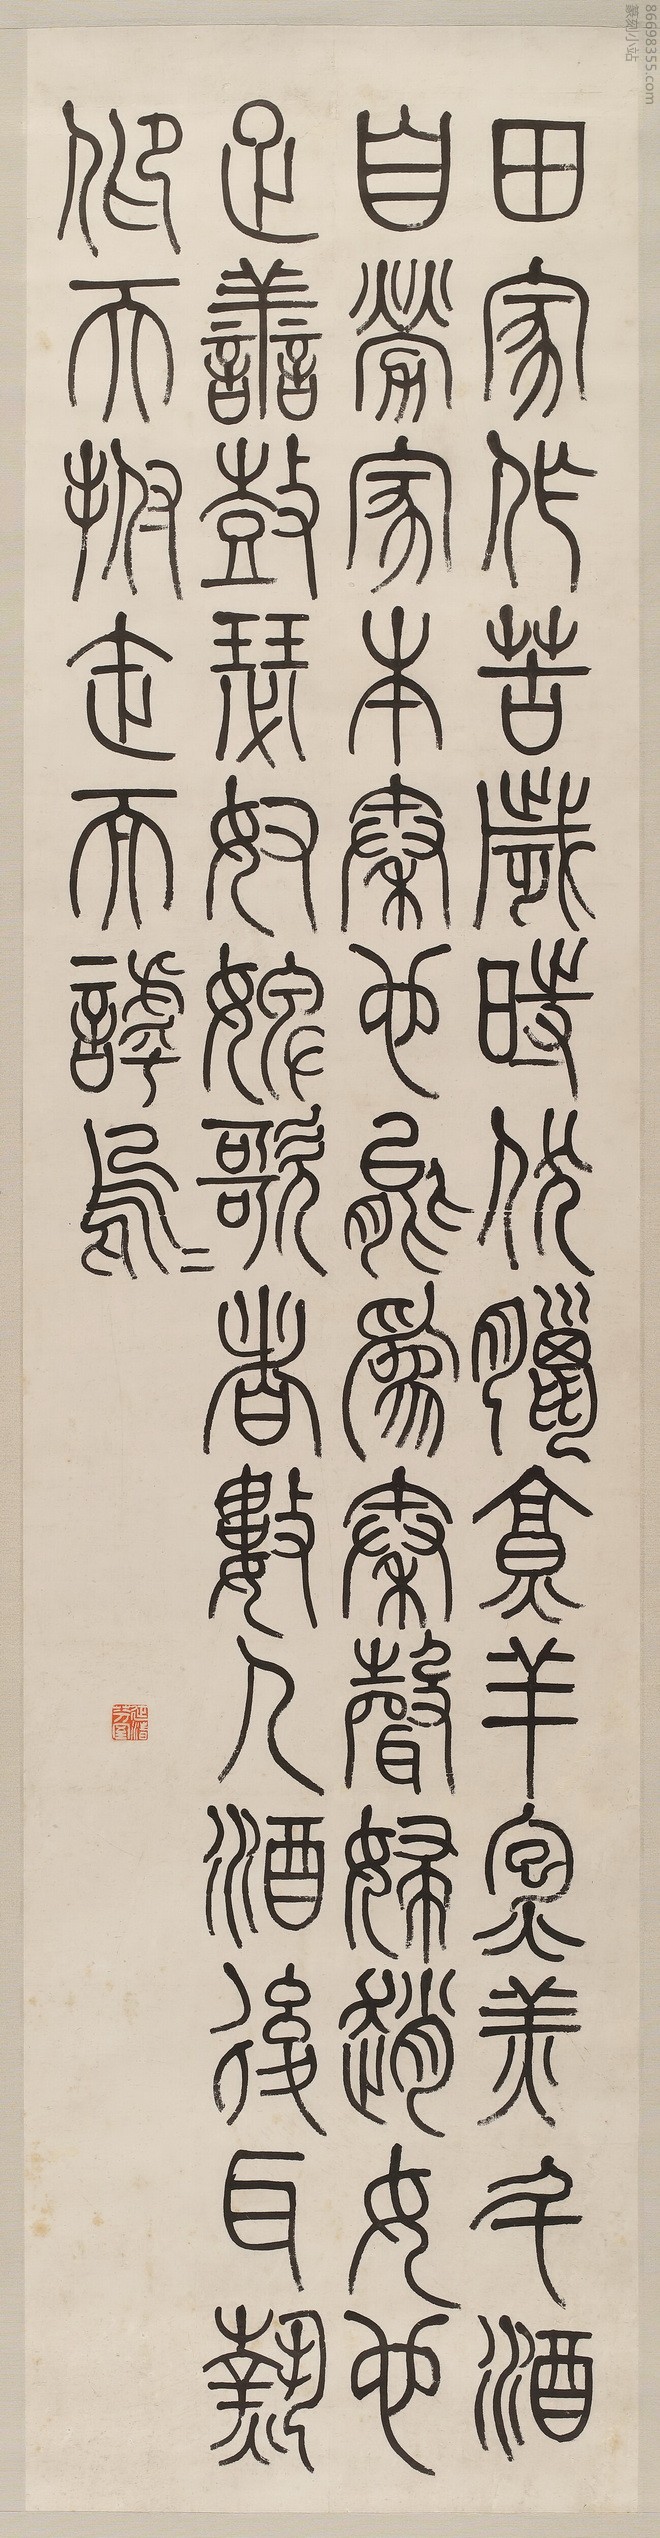 田家作苦歲時伏臘烹羊炰羔斗酒
自勞家本秦也能為秦聲婦趙女也
疋善鼓瑟奴婢歌者數人酒後耳熱
仰天拊缶而謼烏二
86698355.com
篆刻小站